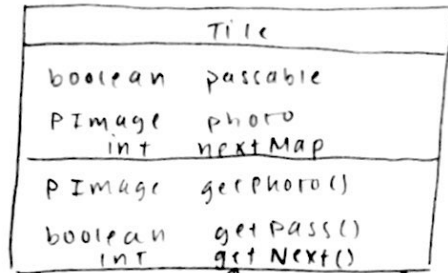 Tile
boolean passable
PImage photo
int nextMap
PImage getPhoto()
boolean getPass()
int getNext()